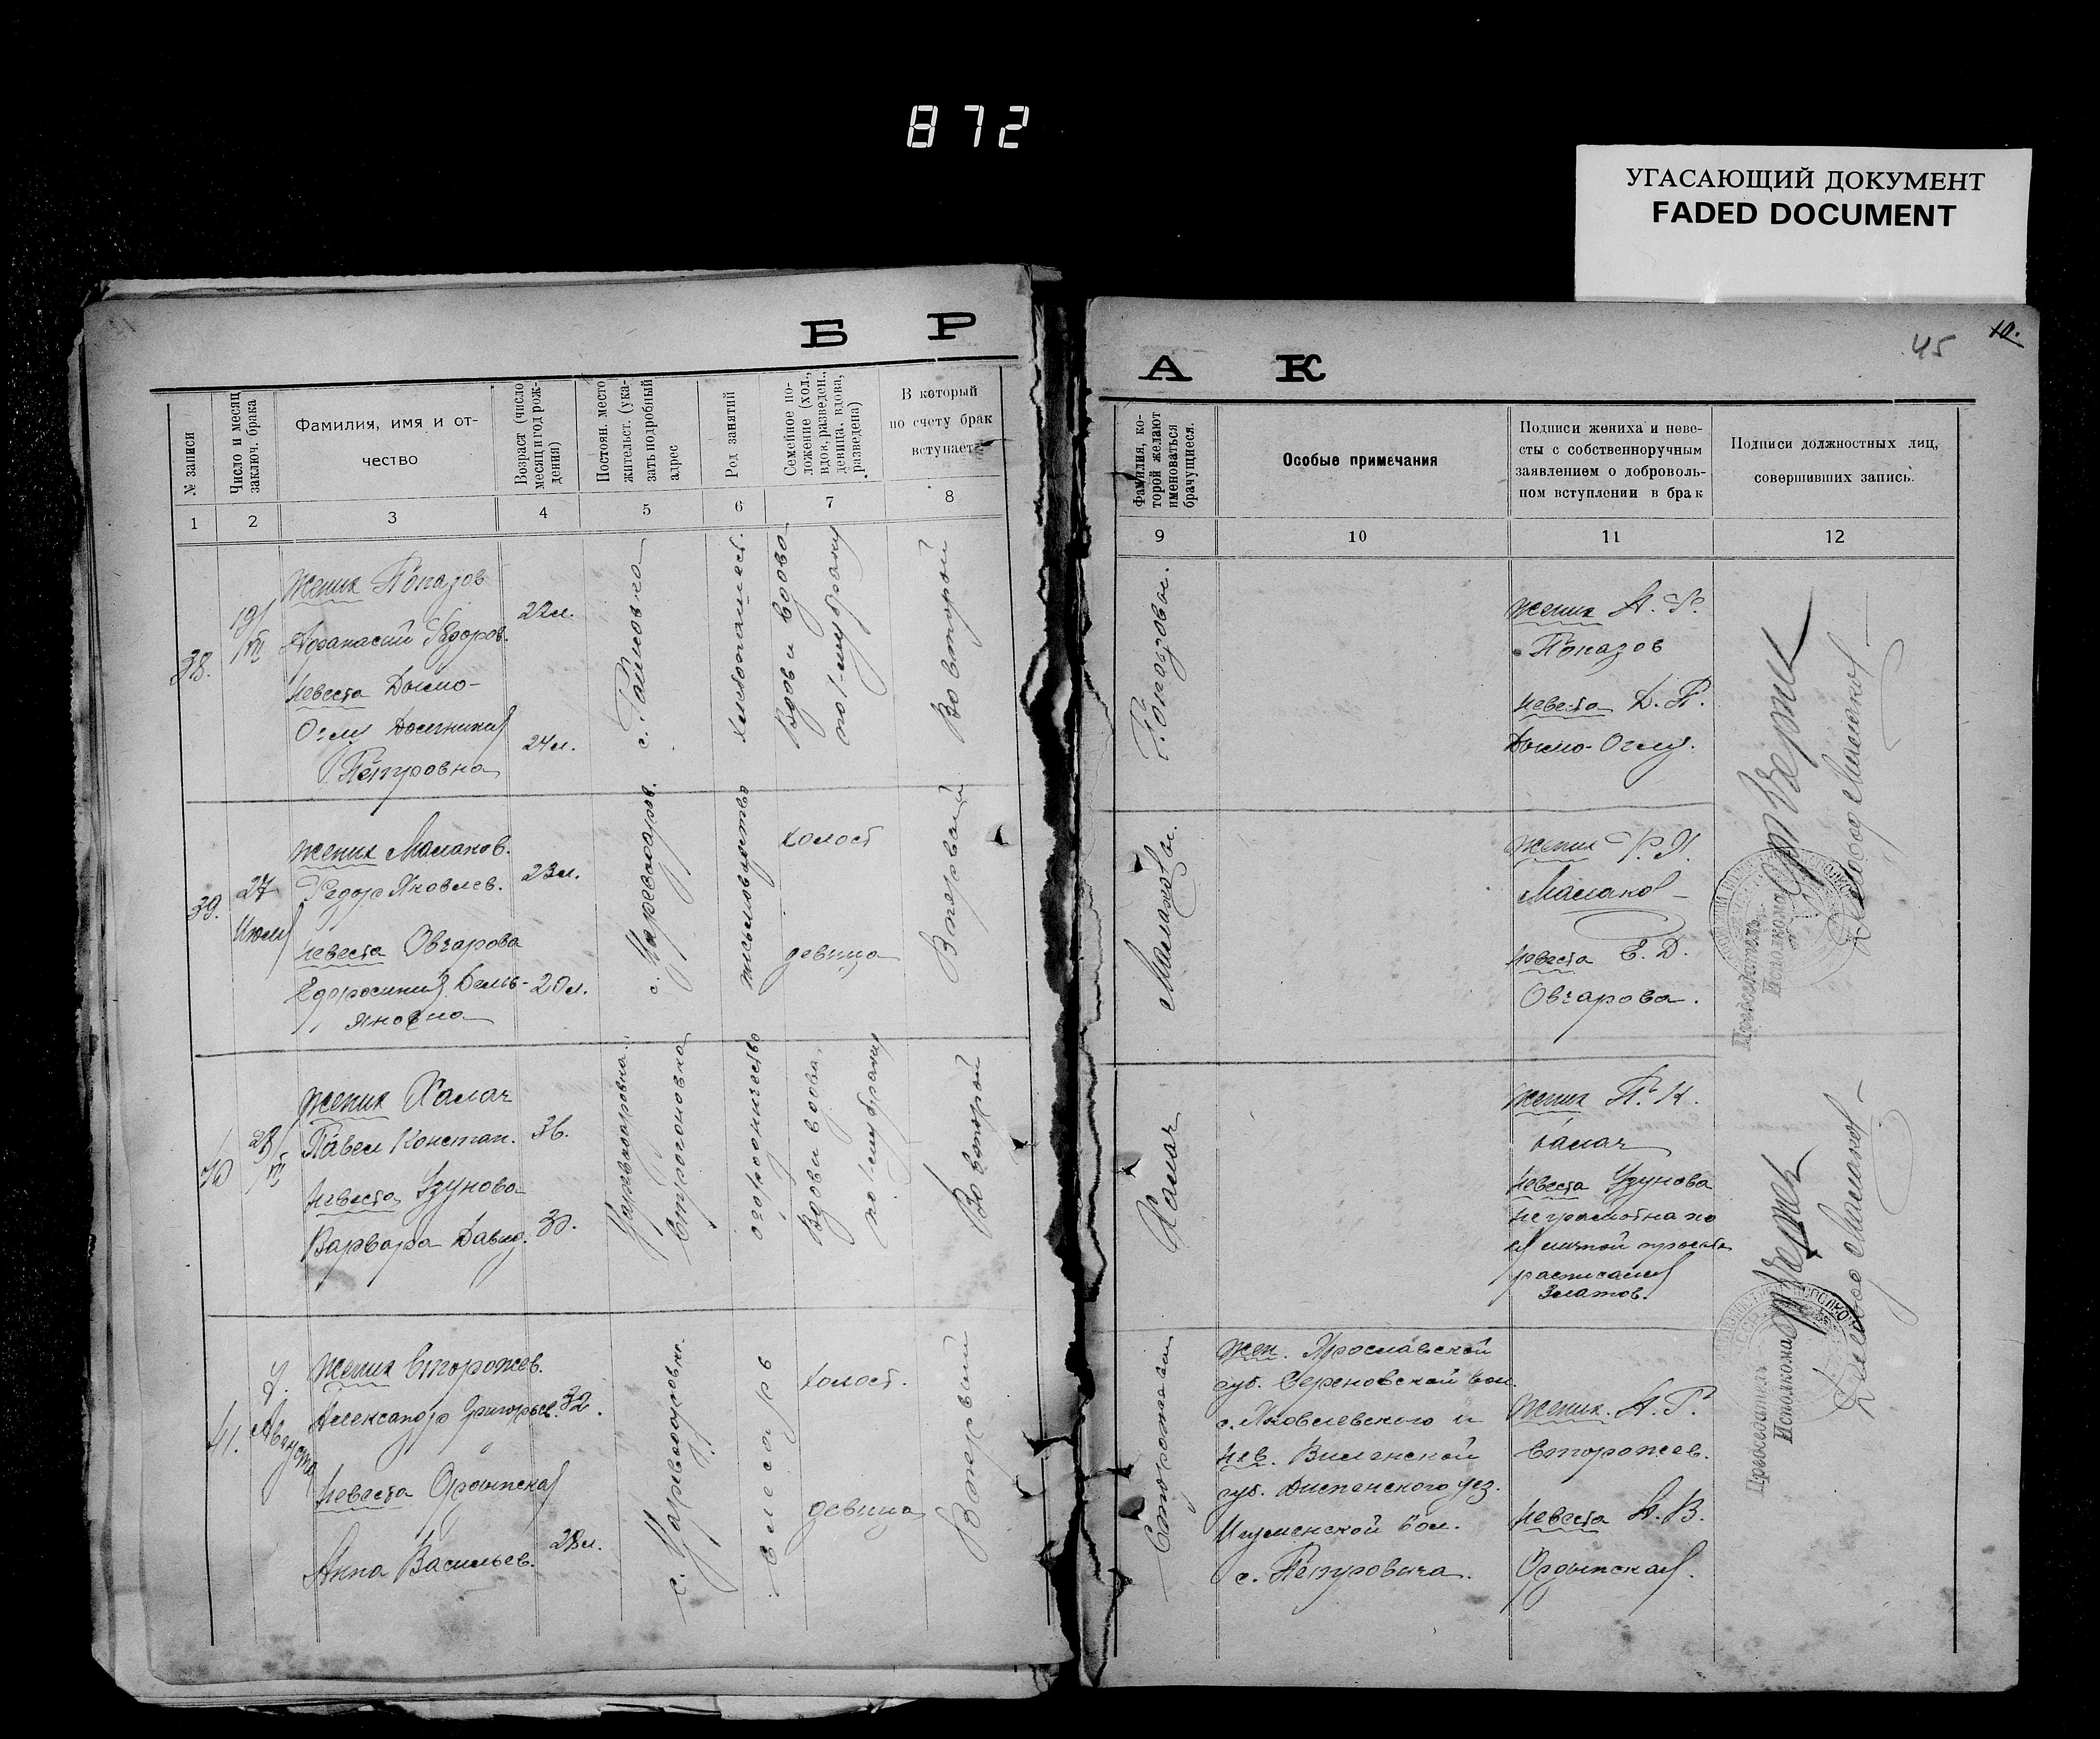 872
УГАСАЮЩИЙ ДОКУМЕНТ
FADED DOCUMENT
Б Р
А К
45
10.
№ записи
Число и месяц
заключ. брака
Фамилия, имя и от-
чество
Возраст (число
месяц и год рож-
дения)
Постоян. место
жительст. (ука-
зать подробный
адрес
Род занятий
Семейное по-
ложение (хол.,
вдов., разведен.,
девица, вдова,
разведена)
В который
по счету брак
вступает
1 2 3 4 5 6 7 8
38.
19/VII
жених Попазов
Афанасий Федоров.
22л.
невеста Дымо-
Оглу
Петровна
24л.
вдов и вдова
по 1-му браку
Во второй
39.
27
Июля
жених Малаков.
Федор Яковлев.
23л.
невеста Овчарова
Ефросиния Демь-
яновна
20л.
холост
девица
В первый
40
28/VII
жених Калач
Павел Констан.
36.
невеста Узунова
Варвара Давид.
30.
Строгоновка
огородничество
вдов и вдова,
по 1-му браку
Во второй
41.
4.
Августа
жених Сторожев.
Александр Григорьев.
32.
невеста Ордынская
Анна Васильев.
28л.
слесарь
холост.
девица
В первый
Фамилия, ко-
торой желают
именоваться
брачущиеся.
Особые примечания
Подписи жениха и неве-
сты с собственноручным
заявлением о доброволь-
ном вступлении в брак
Подписи должностных лиц,
совершивших запись.
9 10 11 12
Попазовы.
жених А. Ф.
Попазов
невеста Д. П.
Дымо-Оглу.
Малаковы.
жених Ф. Я.
Малаков
невеста Е. Д.
Овчарова.
Председатель
Исполкома
Деловод Малаков
Калач
жених П. К.
Калач
невеста Узунова
неграмотна по
ея личной просьбе
расписался
Златов.
Сторожевы
жен. Ярославской
губ. Сереновской вол.
с. Яковлевского и
нев. Виленской
губ. Дисненского уез.
вол.
с. Петровича.
жених. А. Г.
Сторожев.
невеста А. В.
Ордынская.
Председатель
Исполкома
Деловод Малаков